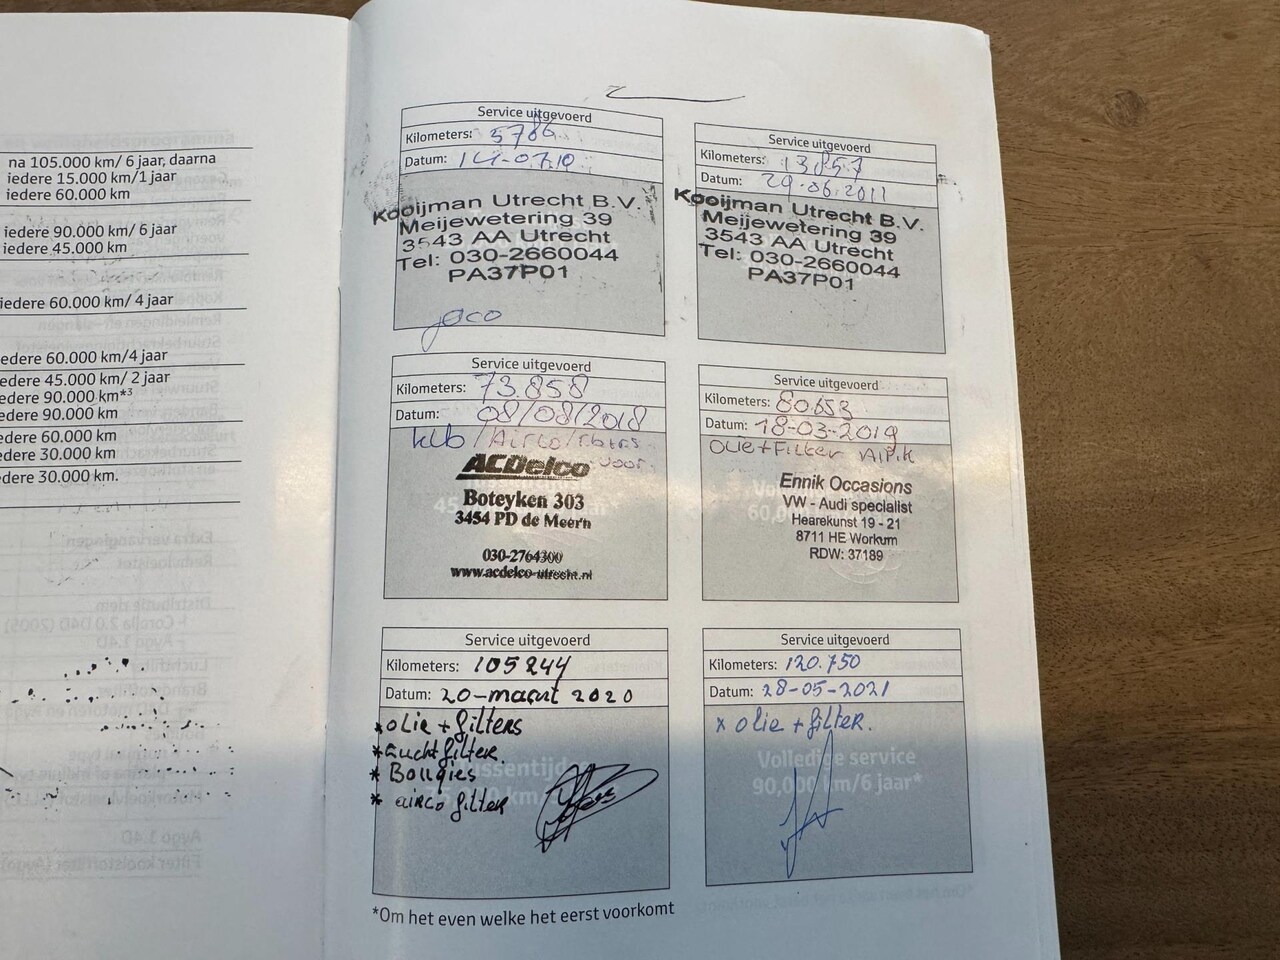 na 105.000 km/ 6 jaar, daarna
iedere 15.000 km/1 jaar
iedere 60.000 km
iedere 90.000 km/ 6 jaar
iedere 45.000 km
iedere 60.000 km/ 4 jaar
edere 60.000 km/4 jaar
edere 45.000 km/ 2 jaar
edere 90.000 km*3
edere 90.000 km
edere 60.000 km
edere 30.000 km
edere 30.000 km.
Service uitgevoerd
Kilometers: 5786
Datum: 14-07.10
Kooijman Utrecht B.V.
Meijewetering 39
3543 AA Utrecht
Tel: 030-2660044
PA37P01
Joco
Service uitgevoerd
Kilometers: 13.857
Datum: 29.06.2011
Kooijman Utrecht B.V.
Meijewetering 39
3543 AA Utrecht
Tel: 030-2660044
PA37P01
Service uitgevoerd
Kilometers: 73.858
Datum: 08/08/2018
klb / Airco /
voor.
ACDelco
Boteyken 303
3454 PD de Meern
030-2764300
www.acdelco-utrecht.nl
Service uitgevoerd
Kilometers: 80653
Datum: 18-03-2019
Olie+Filter A.P.K
Ennik Occasions
VW - Audi specialist
Hearekunst 19 - 21
8711 HE Workum
RDW: 37189
Service uitgevoerd
Kilometers: 105244
Datum: 20-maart 2020
* olie + filters
* Luchtfilter
* Bougies
* airco filter
Service uitgevoerd
Kilometers: 120.750
Datum: 28-05-2021
x olie + filter.
Volledige service
90,000 km/6 jaar*
*Om het even welke het eerst voorkomt